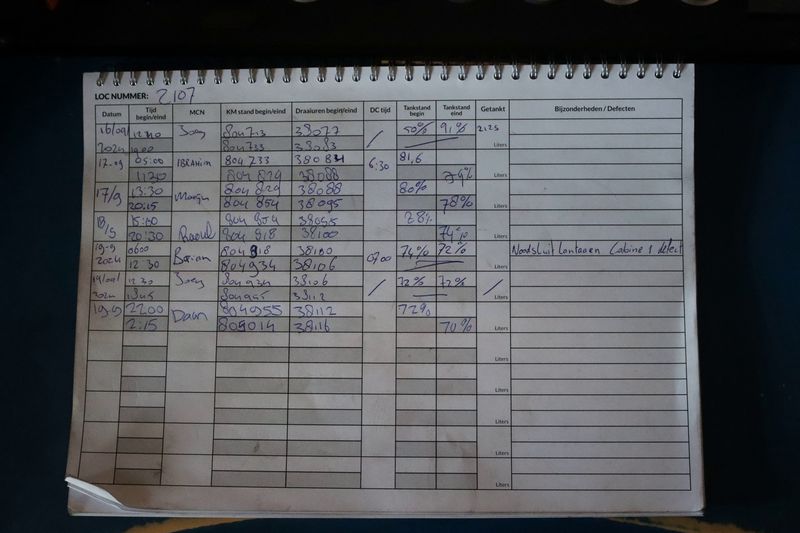 LOC NUMMER: 2107
Datum Tijd begin/eind MCN KM stand begin/eind Draaiuren begin/eind DC tijd Tankstand begin Tankstand eind Getankt Bijzonderheden / Defecten
16/09/ 12:10 Joey 804713 38077 / 50% 91% 2125
2024 19:00 804733 38083 Liters
17.09 05:00 IBRAHIM 804.733 38083 6:30 81,6
1120 804 829 38088 79% Liters
17/9 13:30 804 829 38088 80%
20:15 804 854 38095 78% Liters
18/9 15:00 Raoul 804 854 38095 78%
20:30 804 918 38100 74% Liters
19-9 0600 Bastian 804918 38100 0700 74% 72% Noodsluit lantaren Cabine 1 defect
2024 12:30 804934 38106 Liters
19/09/ 12:30 Joey 804934 38106 / 72% 72% /
2024 1845 804955 38112 Liters
19-9 22:00 Daan 804955 38112 72%
2:15 805014 38116 70% Liters
Liters
Liters
Liters
Liters
Liters